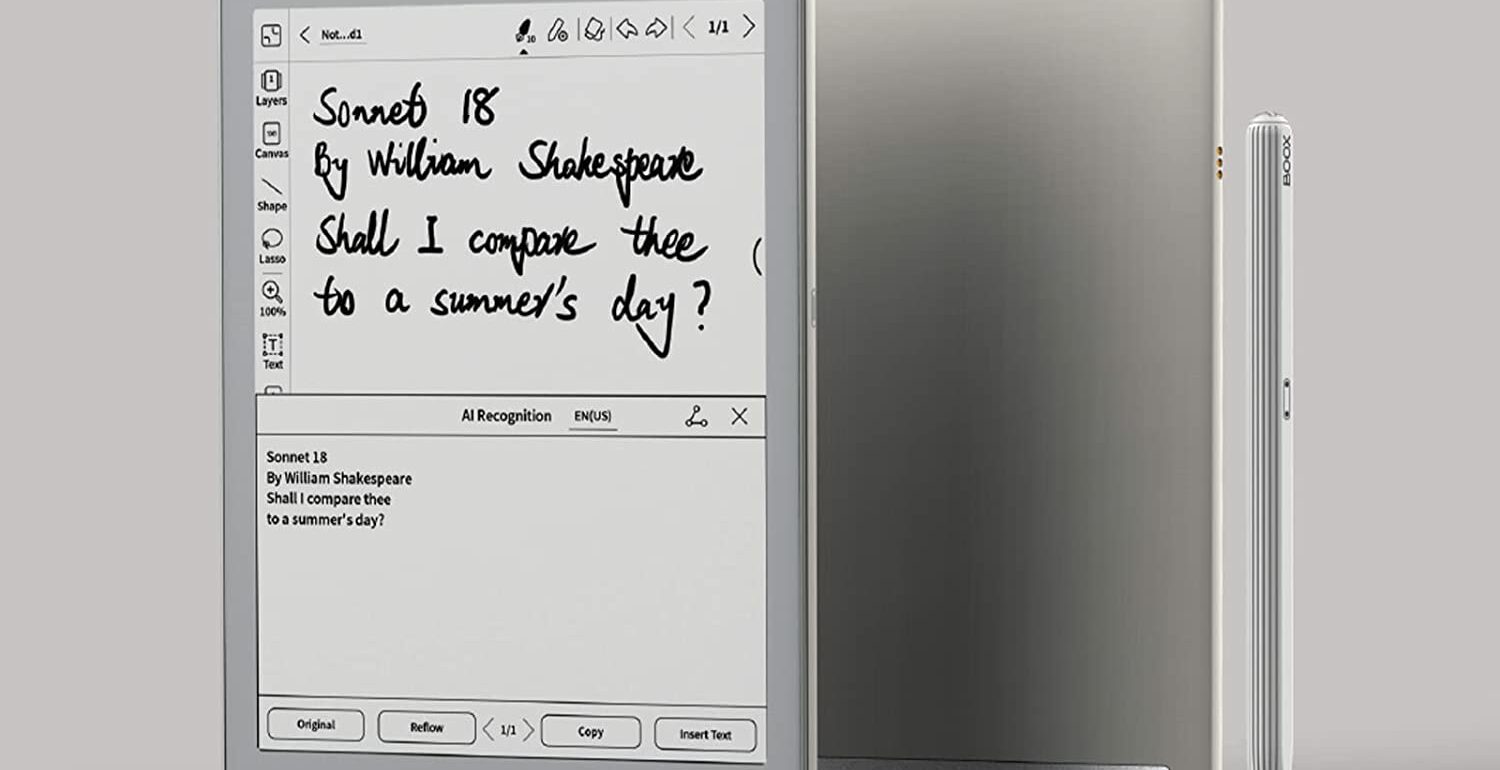 Not...d1
10
1/1
Layers
Canvas
Shape
Lasso
100%
Text
Sonnet 18
By William Shakespeare
Shall I compare thee
to a summer's day?
AI Recognition EN(US)
Sonnet 18
By William Shakespeare
Shall I compare thee
to a summer's day?
Original
Reflow
1/1
Copy
Insert Text
BOOX